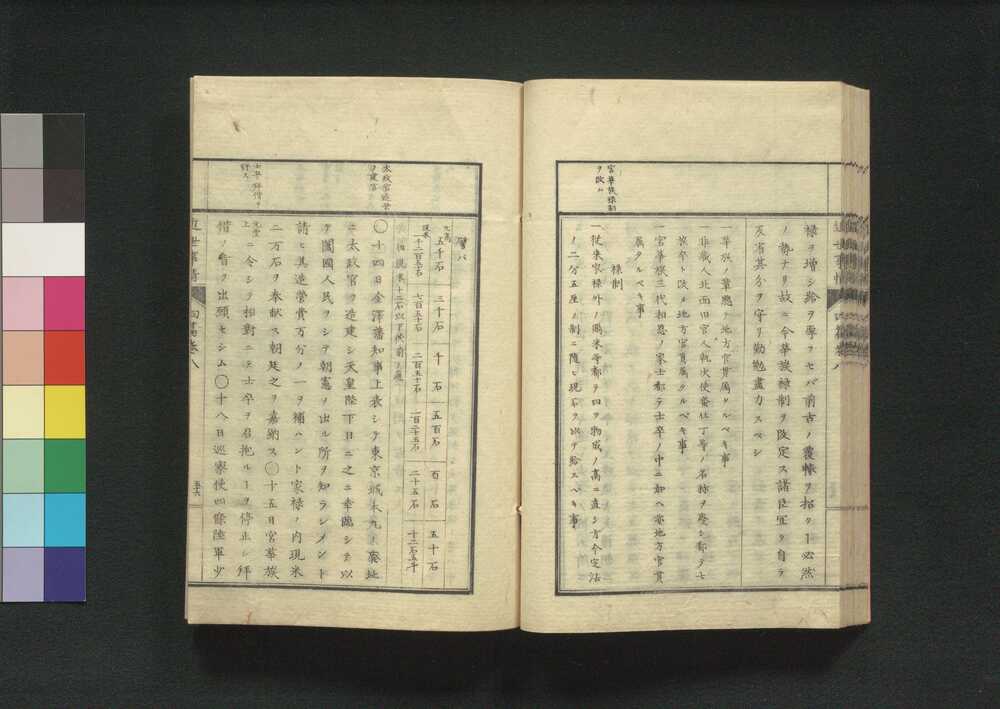 官華族禄制
ヲ改ム
禄ヲ増シ給ヲ厚フセバ前古ノ覆轍ヲ招クヿ必然
ノ勢ナリ故ニ今華族禄制ヲ改定ス諸臣宜ク自ラ
反省其分ヲ守リ勤勉盡力スベシ
一華族ノ輩總テ地方官貫属タルベキ事
一非蔵人北面旧官人執次使番仕丁等ノ名称ヲ廃シ都テ士
族卒ト改メ地方官貫属タルベキ事
一官華族三代相恩ノ家士都テ士卒ノ中ニ加ヘ當地方官貫
属タルベキ事
禄制
一従来家禄外ノ救米等都テ四ツ物成ノ高ニ直シ方今定法
ノ二分五厘ノ制ニ随ヒ現石ヲ以テ給スベキ事
太政官造營
ヲ建言
士卒拝借ヲ
許ス
譬バ
元高
五千石 三千石 千石 五百石 百石 五十石
現米
千二百五十石 七百五十石 二百五十石 一百二十五石 二十五石 十二石五斗
〇十四日金澤藩知事上表シテ東京城本丸ノ廃址
ニ太政官ヲ造建シ天皇陛下日ニ之ニ幸臨シテ以
テ闔國人民ヲシテ朝憲ヲ出ル所ヲ知ラシメント
請ヒ其造營費万分ノ一ヲ補ハント家禄ノ内現米
二万石ヲ奉献ス朝廷之ヲ嘉納ス〇十五日官華族
元堂上ニ令シテ相對ニテ士卒ヲ召抱ルヿヲ停止シ拝
借ノ者ヲ出願セシム〇十八日巡察使四條陸軍少
近世事情
四篇巻八
五十六